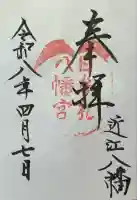 近江八幡
奉拝
日牟礼
八幡宮
令和八年四月七日